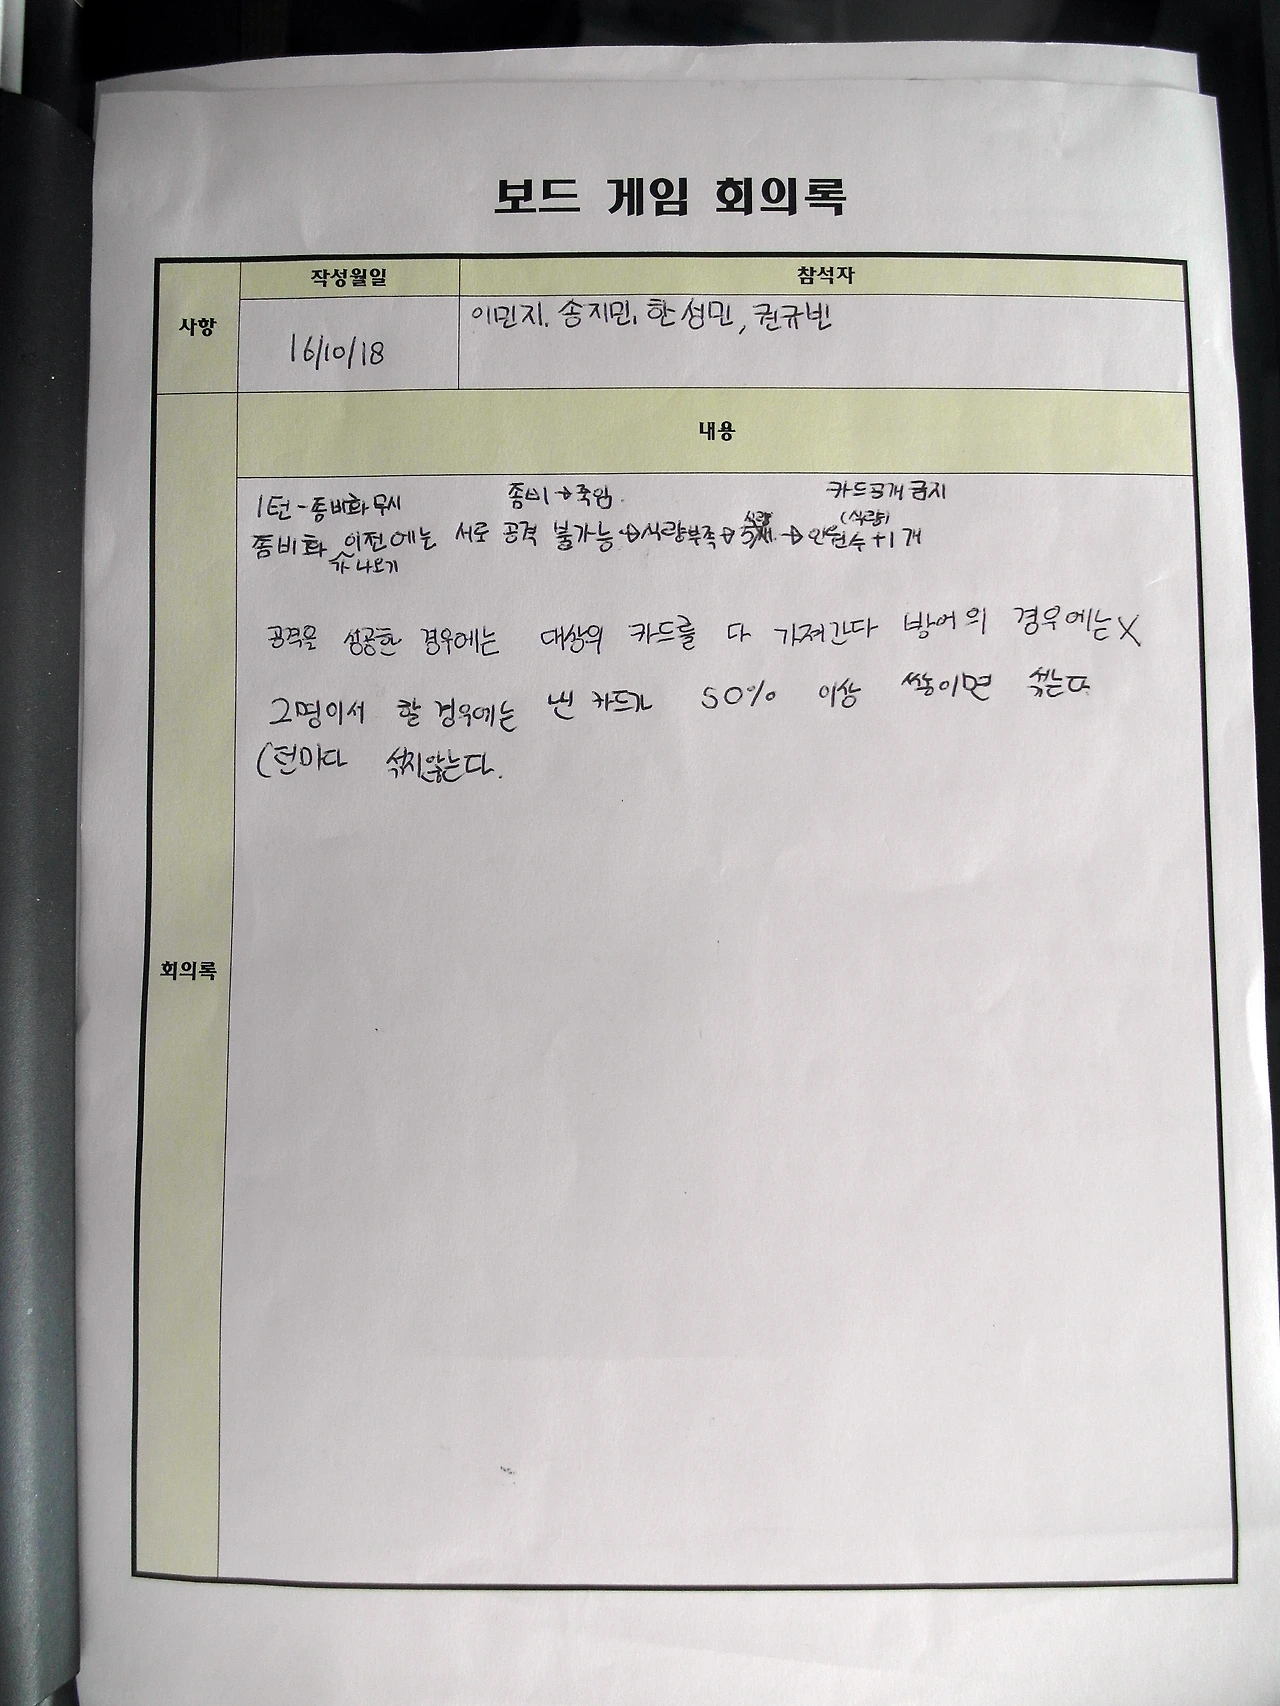 보드 게임 회의록
작성월일 참석자
사항
이민지, 송지민, 한성민, 권규빈
16/10/18
내용
1턴-좀비화 무시 좀비→죽임. 카드공개 금지
식량 (식량)
좀비화 이전에는 서로 공격 불가능→식량부족→5개→인원수+1개
가 나오기
공격을 성공한 경우에는 대상의 카드를 다 가져간다 방어의 경우에는X
2명이서 할 경우에는 낸 카드가 50% 이상 쌓이면 섞는다
(턴마다 섞지않는다.
회의록